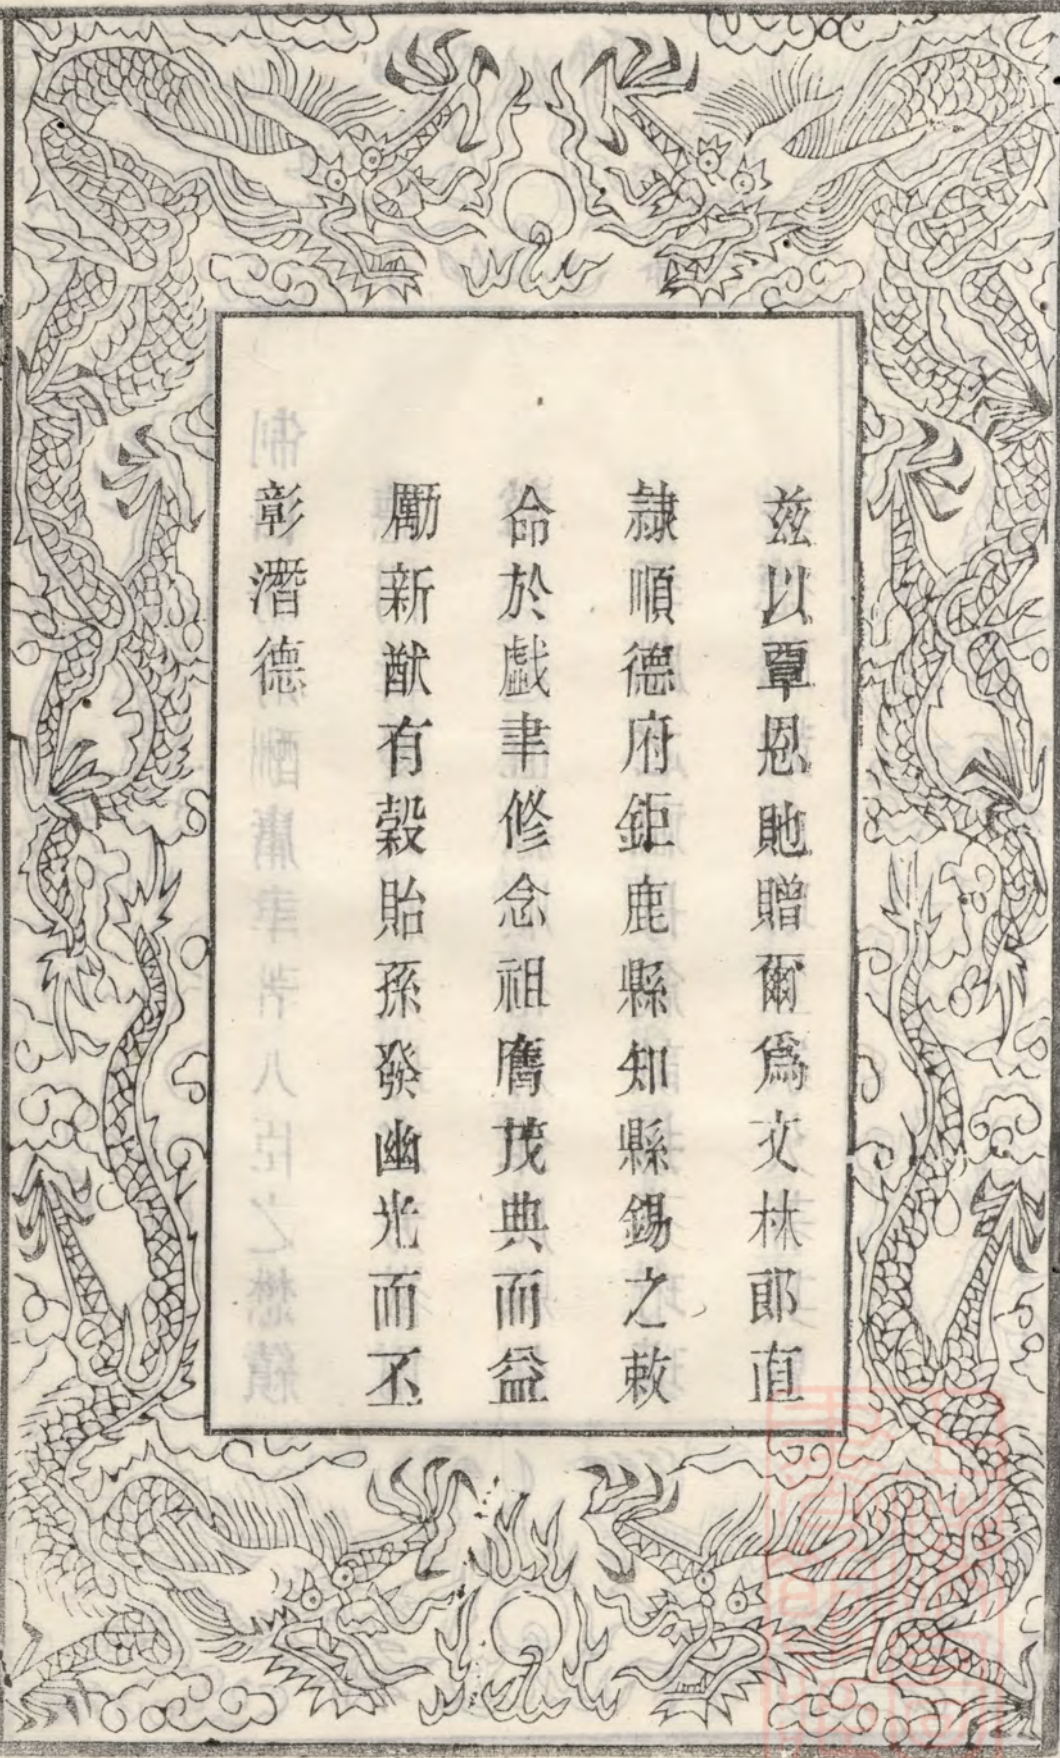 茲以覃恩貤贈爾爲文林郎直
隸順德府鉅鹿縣知縣錫之敕
命於戲聿修念祖膺茂典而益
勵新猷有穀貽孫發幽光而丕
彰潛德